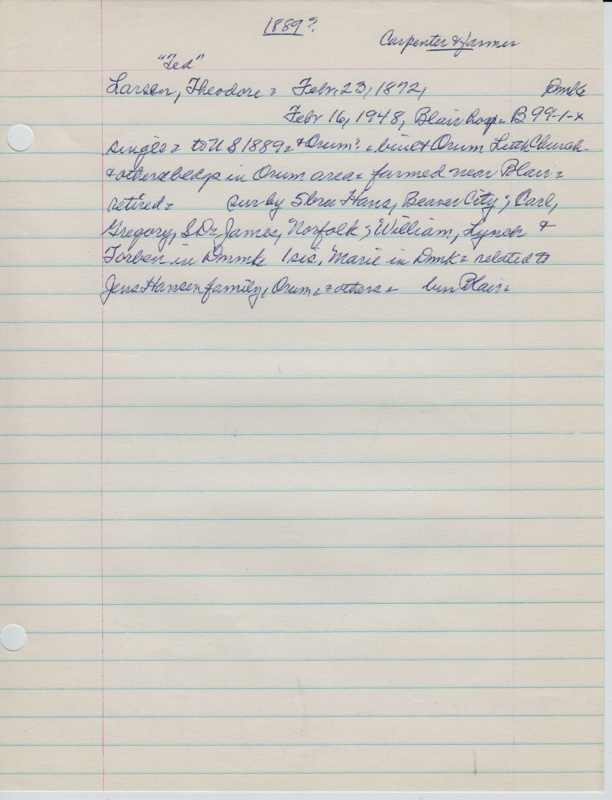 1889?
Carpenter & farmer
"Ted"
Larsen, Theodore = Febr. 23, 1872, Dmk
Febr 16, 1948, Blair Hosp = B 99-1-x
single = to U S 1889 = & Orum? = built Orum Luth Church
& other bldgs in Orum area = farmed near Blair =
retired = sur by 5 bro: Hans, Beaver City; Carl,
Gregory, S D = James, Norfolk; William, &
Torben in Dnmk 1 sis. Marie in Dmk = related to
Jens Hansen family, Orum = & others = bur Blair =